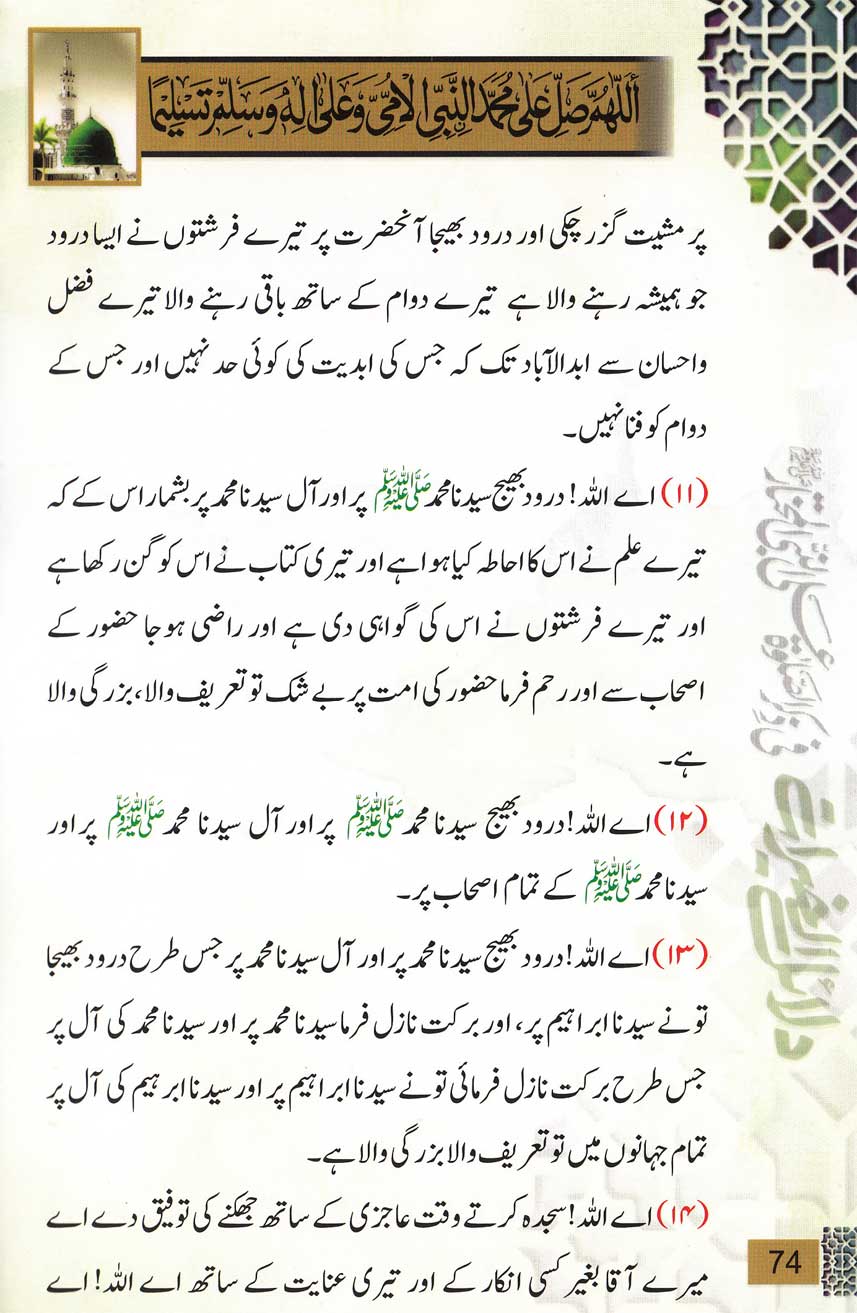 اَللّٰهُمَّ صَلِّ عَلٰى مُحَمَّدِ النَّبِيِّ الْاُمِّيِّ وَعَلٰى اٰلِهٖ وَسَلِّمْ تَسْلِيْمًا
پر مشیت گزر چکی اور درود بھیجا آنحضرت پر تیرے فرشتوں نے ایسا درود
جو ہمیشہ رہنے والا ہے تیرے دوام کے ساتھ باقی رہنے والا تیرے فضل
واحسان سے ابدالآباد تک کہ جس کی ابدیت کی کوئی حد نہیں اور جس کے
دوام کو فنا نہیں۔
(۱۱) اے اللہ! درود بھیج سیدنا محمد ﷺ پر اور آل سیدنا محمد پر بشمار اس کے کہ
تیرے علم نے اس کا احاطہ کیا ہوا ہے اور تیری کتاب نے اس کو گن رکھا ہے
اور تیرے فرشتوں نے اس کی گواہی دی ہے اور راضی ہو جا حضور کے
اصحاب سے اور رحم فرما حضور کی امت پر بے شک تو تعریف والا، بزرگی والا
ہے۔
(۱۲) اے اللہ! درود بھیج سیدنا محمد ﷺ پر اور آل سیدنا محمد ﷺ پر اور
سیدنا محمد ﷺ کے تمام اصحاب پر۔
(۱۳) اے اللہ! درود بھیج سیدنا محمد پر اور آل سیدنا محمد پر جس طرح درود بھیجا
تو نے سیدنا ابراہیم پر، اور برکت نازل فرما سیدنا محمد پر اور سیدنا محمد کی آل پر
جس طرح برکت نازل فرمائی تو نے سیدنا ابراہیم پر اور سیدنا ابرہیم کی آل پر
تمام جہانوں میں تو تعریف والا بزرگی والا ہے۔
(۱۴) اے اللہ! سجدہ کرتے وقت عاجزی کے ساتھ جھکنے کی توفیق دے اے
میرے آقا بغیر کسی انکار کے اور تیری عنایت کے ساتھ اے اللہ! اے
دلائل الخیرات
74